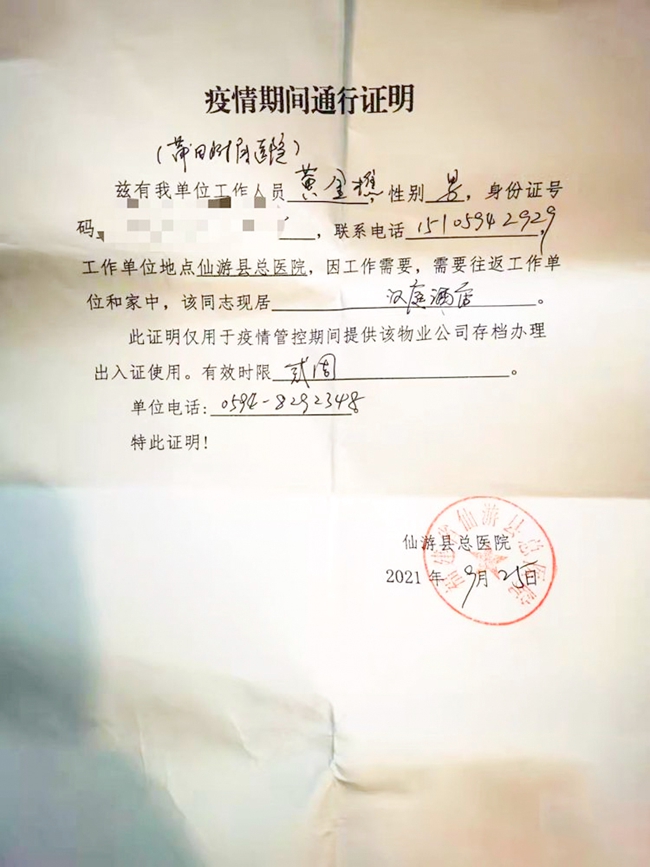 疫情期间通行证明
(莆田附属医院)
兹有我单位工作人员黄金樵,性别男,身份证号
码,联系电话15105942929,
工作单位地点仙游县总医院,因工作需要,需要往返工作单
位和家中,该同志现居汉庭酒店。
此证明仅用于疫情管控期间提供该物业公司存档办理
出入证使用。有效时限贰周。
单位电话:0594-8292348
特此证明!
仙游县总医院
2021年9月25日
仙游县总医院